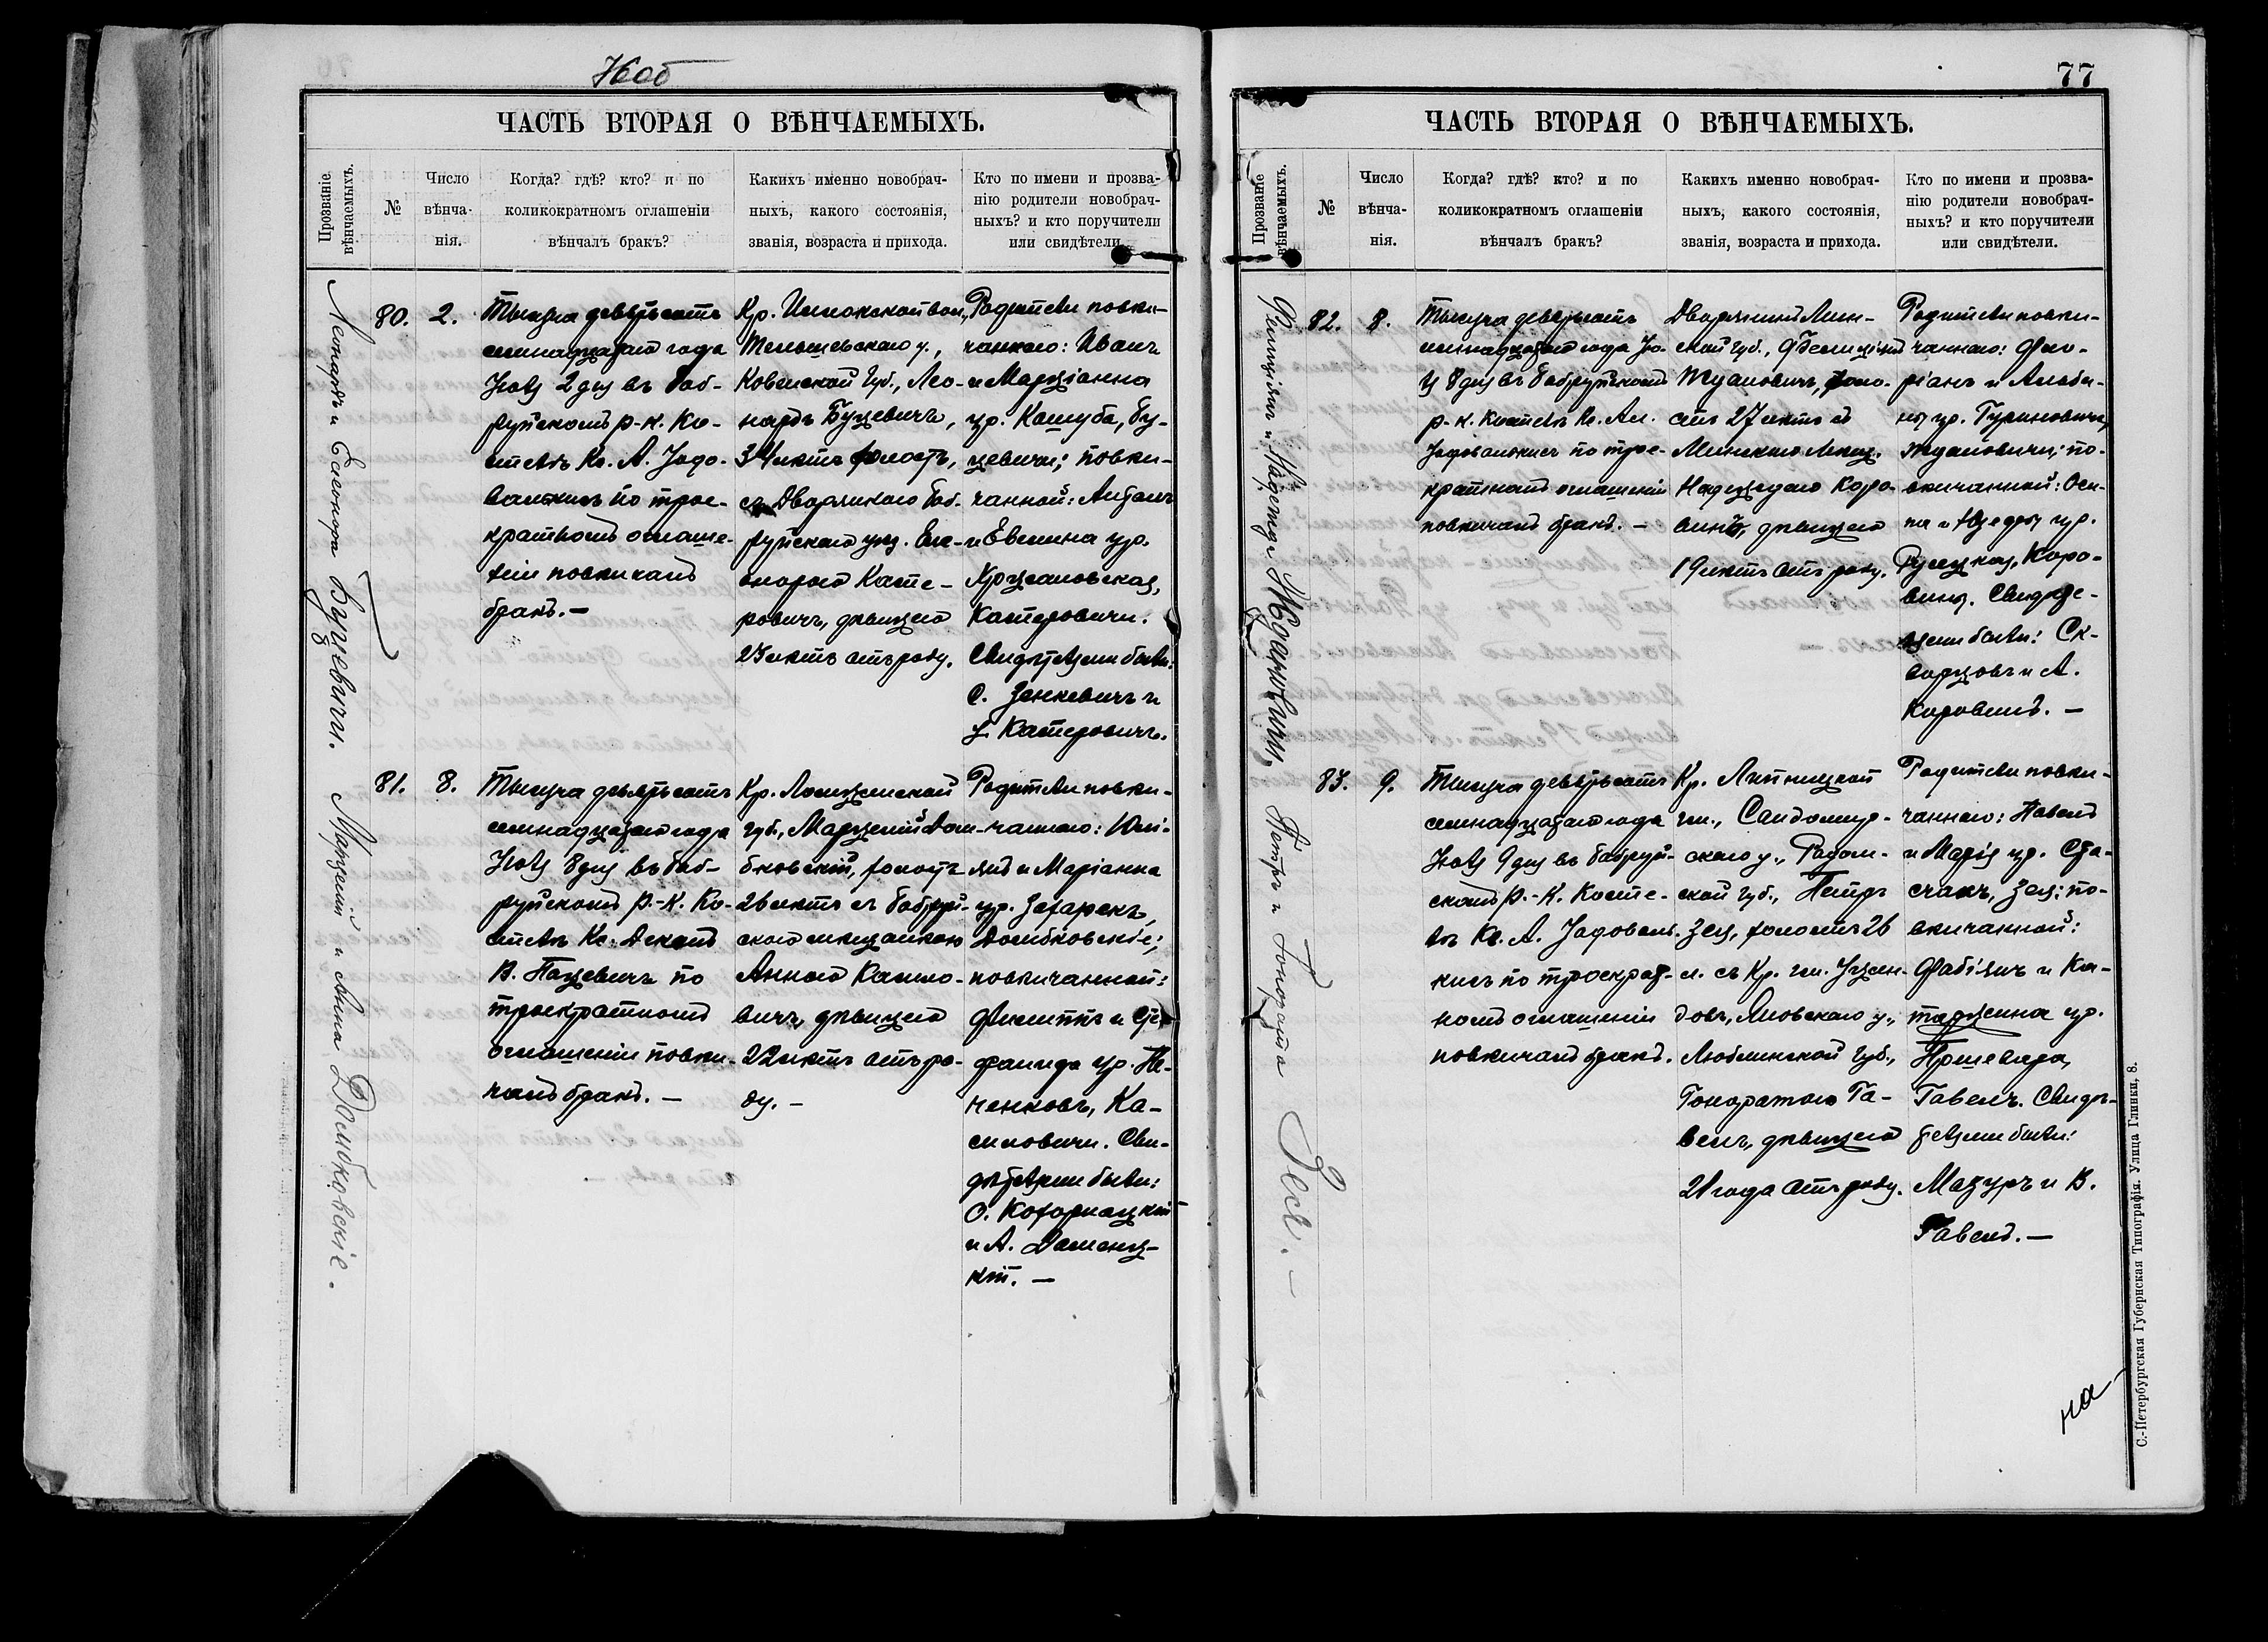 Нюб
ЧАСТЬ ВТОРАЯ О ВѢНЧАЕМЫХЪ.
Прозваніе вѣнчаемыхъ.
№
Число вѣнча-
нія.
Когда? гдѣ? кто? и по
коликократномъ оглашеніи
вѣнчалъ бракъ?
Какихъ именно новобрач-
ныхъ, какого состоянія,
званія, возраста и прихода.
Кто по имени и прозва-
нію родители новобрач-
ныхъ? и кто поручители
или свидѣтели.
Леонардъ и Елеонора Буцевичи.
80.
2.
Тысяча девятьсотъ
семнадцатаго года
Іюля 2 дня въ Боб-
руйскомъ р.-к. Ко-
стелѣ Кс. А. Ядо-
валкисъ по трое-
кратномъ оглаше-
ніи повѣнчалъ
бракъ. —
Кр.
Тельшевскаго у.,
Ковенской губ., Лео-
нардъ Буцевичъ,
34 лѣтъ холостъ,
съ Дворянкою Боб-
руйскаго уѣз. Еле-
онорою Кате-
ровичъ, дѣвицею
23 лѣтъ отъ роду.
Родители повѣн-
чаннаго: Иванъ
и Марціанна
ур. Кашуба, Бу-
цевичи; повѣн-
чанной: Антонъ
и Евелина ур.
Хрцановская,
Катеровичи.
Свидѣтелями были:
С. Зенкевичъ и
Катеровичъ.
Марцелій и Анна Домбковскіе.
81.
8.
Тысяча девятьсотъ
семнадцатаго года
Іюля 8 дня въ Боб-
руйскомъ р.-к. Ко-
стелѣ Кс. Деканъ
В. Пацевичъ по
троекратномъ
оглашеніи повѣн-
чалъ бракъ. —
Кр. Ломжинской
губ., Марцелій Дом-
бковскій, холостъ
26 лѣтъ съ Бобруй-
скою мѣщанкою
Анною Касило-
вичъ, дѣвицею
22 лѣтъ отъ ро-
ду. —
Родители повѣн-
чаннаго: Юлі-
янъ и Маріанна
ур. Захарекъ,
Домбковскіе;
повѣнчанной:
Филиппъ и Сте-
фанида ур. Не-
ченковъ, Ка-
силовичи. Сви-
дѣтелями были:
и А.
77
ЧАСТЬ ВТОРАЯ О ВѢНЧАЕМЫХЪ.
Прозваніе вѣнчаемыхъ.
№
Число вѣнча-
нія.
Когда? гдѣ? кто? и по
коликократномъ оглашеніи
вѣнчалъ бракъ?
Какихъ именно новобрач-
ныхъ, какого состоянія,
званія, возраста и прихода.
Кто по имени и прозва-
нію родители новобрач-
ныхъ? и кто поручители
или свидѣтели.
Фелиціянъ и Надежда Ждановичи.
82.
8.
Тысяча девятьсотъ
семнадцатаго года Ію-
ля 8 дня въ Бобруйскомъ
р.-к. Костелѣ Кс. Ал.
Ядовалкисъ по трое-
кратномъ оглашеніи
повѣнчалъ бракъ. —
Дворянинъ Мин-
ской губ., Фелиціянъ
Ждановичъ, холо-
стъ 27 лѣтъ съ
Минскою мѣщ.
Надеждою Коро-
виною, дѣвицею
19 лѣтъ отъ роду.
Родители повѣн-
чаннаго: Фло-
ріанъ и Альби-
на ур. Гуриновичъ,
Ждановичи; по-
вѣнчанной: Оси-
па и Ѳедоры ур.
Корo-
вины. Свидѣте-
лями были: Ск-
ворцовъ и А.
Коровинъ. —
Петръ и Гонората Зея. —
83.
9.
Тысяча девятьсотъ
семнадцатаго года
Іюля 9 дня въ Бобруй-
скомъ р.-к. Косте-
лѣ Кс. А. Ядоваль-
кисъ по троекрат-
номъ оглашеніи
повѣнчалъ бракъ.
Кр. Липницкой
гм., Сандомир-
скаго у., Радом-
ской губ., Петръ
Зея, холостъ 26
л. съ Кр. гм.
Яновскаго у.,
Люблинской губ.,
Гоноратою Га-
велъ, дѣвицею
21 года отъ роду.
Родители повѣн-
чаннаго: Павелъ
и Марія ур. Ста-
сякъ, Зея; по-
вѣнчанной:
Фабіянъ и Ка-
таржина ур.
Пршевара,
Гавелъ. Свидѣ-
телями были:
Мазуръ и В.
Гавелъ. —
на
С.-Петербургская Губернская Типографія. Улица Глинки, 8.